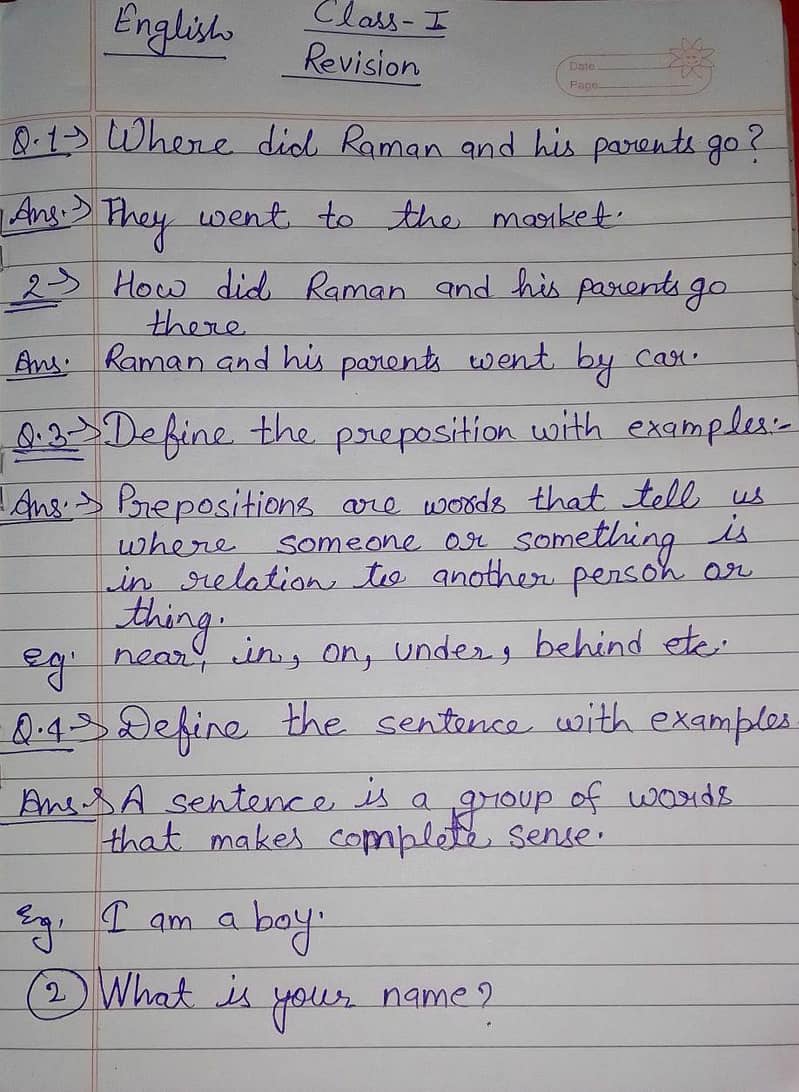 English Class-I
Revision
Date
Page
Q.1→ Where did Raman and his parents go?
Ans.→ They went to the market.
2→ How did Raman and his parents go
there
Ans. Raman and his parents went by car.
Q.3→ Define the preposition with examples:-
Ans.→ Prepositions are words that tell us
where someone or something is
in relation to another person or
thing.
eg. near, in, on, under, behind etc.
Q.4→ Define the sentence with examples.
Ans.→ A sentence is a group of words
that makes complete sense.
Eg. I am a boy.
2 What is your name?